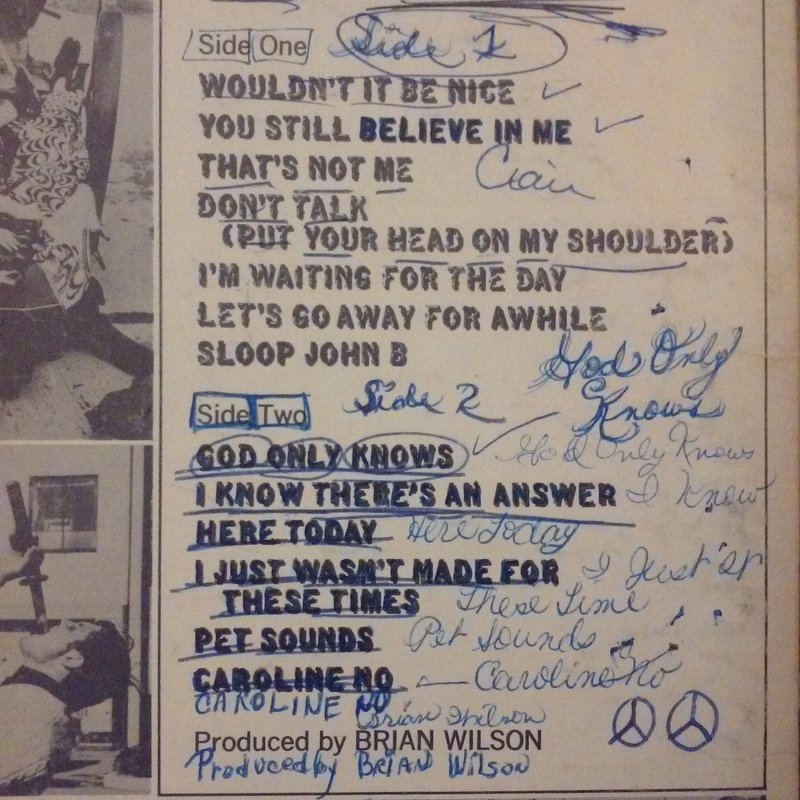 Side One Side 1
WOULDN'T IT BE NICE
YOU STILL BELIEVE IN ME
THAT'S NOT ME
DON'T TALK
(PUT YOUR HEAD ON MY SHOULDER)
I'M WAITING FOR THE DAY
LET'S GO AWAY FOR AWHILE
SLOOP JOHN B
God Only
Knows
Side Two Side 2
GOD ONLY KNOWS God Only Knows
I KNOW THERE'S AN ANSWER I Know
HERE TODAY Here Today
I JUST WASN'T MADE FOR I Just
THESE TIMES These Time
PET SOUNDS Pet Sounds
CAROLINE NO Caroline No
CAROLINE NO Brian Wilson
Produced by BRIAN WILSON
Produced by BRIAN Wilson